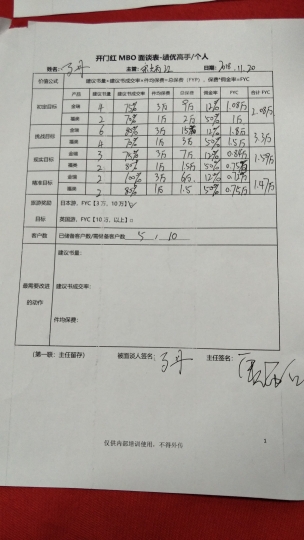 开门红 MBO 面谈表-绩优高手/个人
姓名: 马丹 主管: 日期: 2018.11.20
价值公式 建议书量*建议书成交率*件均保费=总保费(FYP),保费*佣金率=FYC
产品 建议书量 建议书成交率 件均保费 总保费 佣金率 FYC 合计 FYC
目标 金瑞 4 75% 3万 9万 12% 1.08万 2.08万
福满 2 75% 1万 2万 50% 1万
挑战目标 金瑞 6 80% 3万 15万 12% 1.8万 3.3万
福满 4 75% 1万 3万 50% 1.5万
目标 金瑞 3 75% 3万 7万 12%
福满 2 80% 1万 1.5万 50%
目标 金瑞 2 100% 3万 6万 12% 1.47万
福满 2 80% 1万 1.5 50%
旅游奖励 日本游,FYC【3万,10万】✓
目标 英国游,FYC【10万,以上】○
客户数 已储备客户数/需储备客户数 5 / 10
建议书量:
最需要改进
的动作 建议书成交率:
件均保费:
(第一联:主任留存) 被面谈人签名: 马丹 主任签名:
仅供内部培训使用,不得外传
1